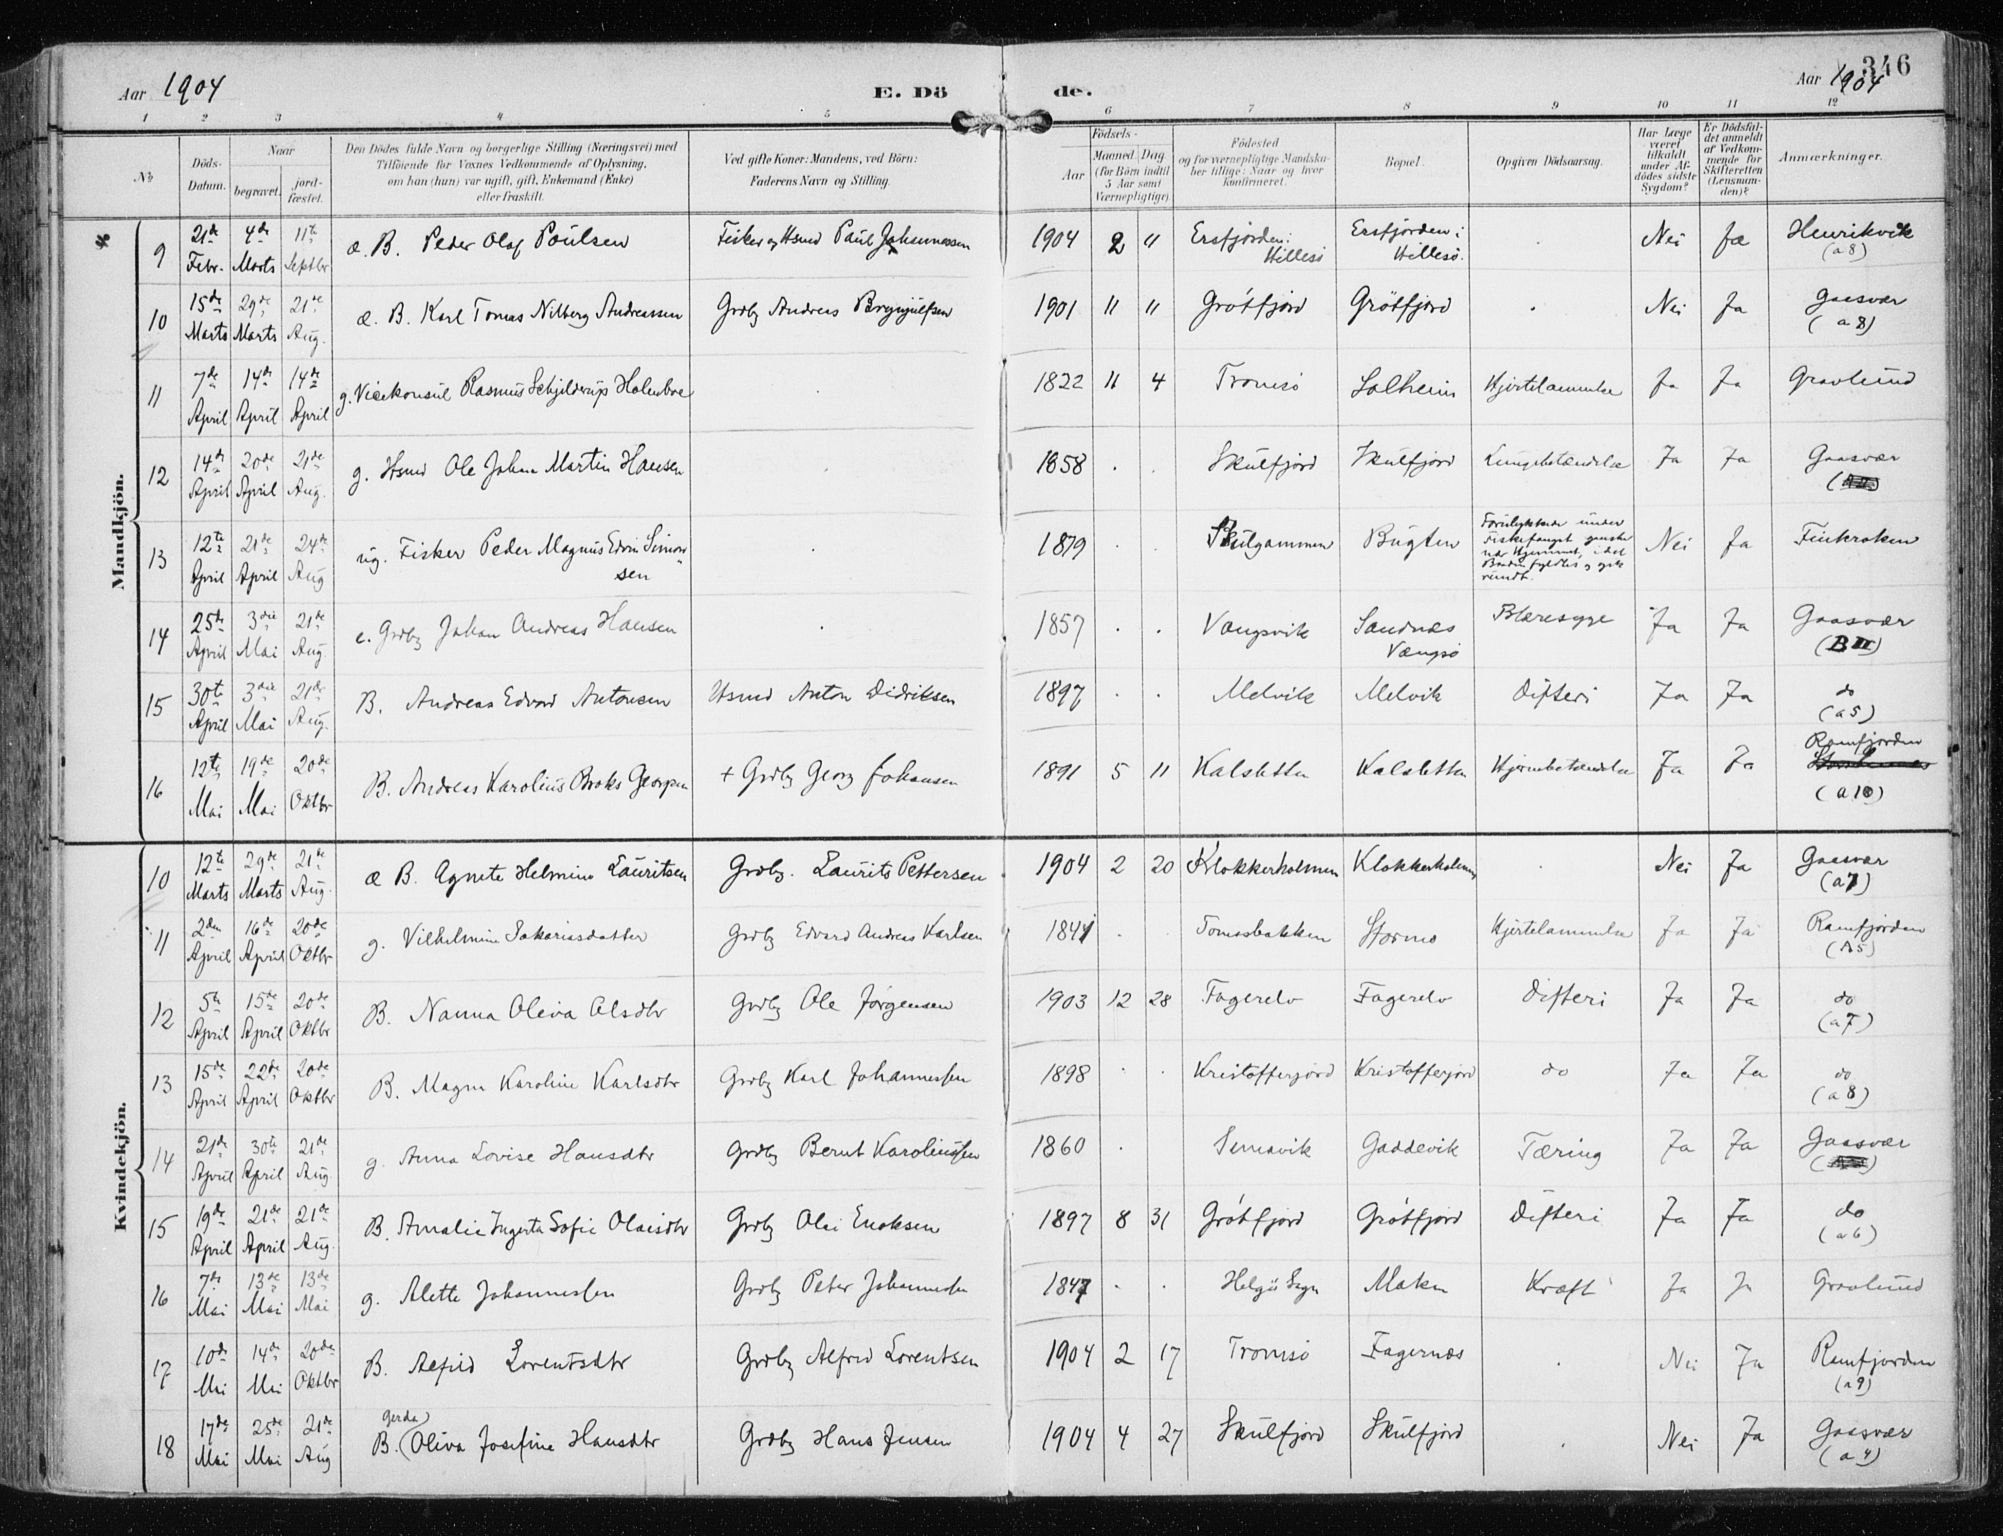 346
Aar 1904
E. Dö
de.
Aar 1904
1 2 3 4 5 6 7 8 9 10 11 12
No
Döds-Datum.
Naar
begravet.
jord-fæstet.
Den Dödes fulde Navn og borgerlige Stilling (Næringsvei) med
Tilföiende for Voxnes Vedkommende af Oplysning,
om han (hun) var ugift, gift, Enkemand (Enke)
eller fraskilt.
Ved gifte Koner: Mandens, ved Börn:
Faderens Navn og Stilling.
Födsels-
Aar
Maaned Dag
(for Börn indtil
5 Aar samt
Værnepligtige)
Födested
og for værnepligtige Mandska-
ber tillige: Naar og hvor
konfirmeret.
Bopæl.
Opgiven Dödsaarsag.
Har Læge
været
tilkaldt
under Af-
dödes sidste
Sygdom?
Er Dödsfal-
det anmeldt
af Vedkom-
mende for
Skifteretten
(Lensman-
den)?
Anmærkninger.
Mandkjön.
9 21de Febr. 4de Marts 11te Septbr æ. B. Peder Olaf Poulsen Fisker og Hsmd Paul Johannessen 1904 2 " Ersfjorden: Hillesö Ersfjorden i Hillesö. . Nei Ja Henrikvik (a 8)
10 15de Marts 29de Marts 21de Aug. æ. B. Karl Tomas Nilberg Andreassen Grdbr Andreas Brynjulfsen 1901 " " Grötfjord Grötfjord . Nei Ja Gaasvær (a 8)
11 7de April 14de April 14de April g. Vicekonsul Rasmus Schjelderup Holmboe . 1822 11 4 Tromsö Solheim Hjertelammelse Ja Ja Gravlund
12 14de April 20de April 21de Aug. g. Hsmd Ole Johan Martin Hansen . 1858 . . Skulfjord Skulfjord Lungebetændelse Ja Ja Gaasvær
13 12te April 21de April 24de Aug ug. Fisker Peder Magnus Edvin Simonsen 1879 Skulgammen Bugten Forulykkede under Fiskefangst ganske nær Hjemmet, i det Baaden fyldtes og gik rundt. Nei Ja Finkroken
14 25de April 3die Mai 21de Aug. e. Grdbr Johan Andreas Hansen . 1857 . . Vangsvik Sandnæs Vængsö Blæresyge Ja Ja Gaasvær
15 30te April 3die Mai 21de Aug. B. Andreas Edvard Antonsen Hsmd Anton Didriksen 1897 Melvik Melvik Difteri Ja Ja do (a 5)
16 12te Mai 19de Mai 20de Oktbr B. Andreas Karolius Broks Georgsen + Grdbr Georg Johansen 1891 5 11 Kalsletten Kalsletten Hjernebetændelse Ja Ja Ramfjorden (a 10)
Kvindekjön.
10 12te Marts 29de Marts 21de Aug. æ B. Agnete Helmine Lauritsen Grdbr. Laurits Pettersen 1904 2 20 Klokkerholmen Klokkerholmen . Nei Ja Gaasvær (a 7)
11 2den April 16de April 20de Oktbr g. Vilhelmine Sakariasdatter Grdbr Edvard Andreas Karlsen 1841 . . Tomasbakken Stormo Hjertelammelse Ja Ja Ramfjorden (A5)
12 5te April 15de April 20de Oktbr B. Nanna Oliva Olsdtr Grdbr Ole Jörgensen 1903 12 28 Fagerelv Fagerelv Difteri Ja Ja do (a 7)
13 15de April 22de April 20de Oktbr B. Magna Karoline Karlsdtr Grdbr Karl Johannessen 1898 . . Kristofferjord Kristofferjord do Ja Ja do (a 8)
14 21de April 30te April 21de Aug. g. Anna Lovise Hansdtr Grdbr Bernt Karoliussen 1860 . Simavik Gaddevik Tæring Ja Ja Gaasvær
15 19de April 21de April 21de Aug. B. Amalie Ingerta Sofie Olaisdtr Grdbr Olai Enoksen 1897 8 31 Grötfjord Grötfjord Difteri Ja Ja do (a 6)
16 7de Mai 13de Mai 13de Mai g. Alette Johannessen Grdbr Peter Johannessen 1847 . . Helgö Sogn Maken Kræft Ja Ja Gravlund
17 10de Mai 14de Mai 20de Oktbr B. Alfild Lorentsdtr Grdbr Alfred Lorentsen 1904 2 17 Tromsö Fagernæs . Nei Ja Ramfjorden (a 9)
18 17de Mai 25de Mai 21de Aug B. (Gerda) Oliva Josefine Hansdtr Grdbr Hans Jensen 1904 4 27 Skulfjord Skulfjord . Nei Ja Gaasvær (a 4)